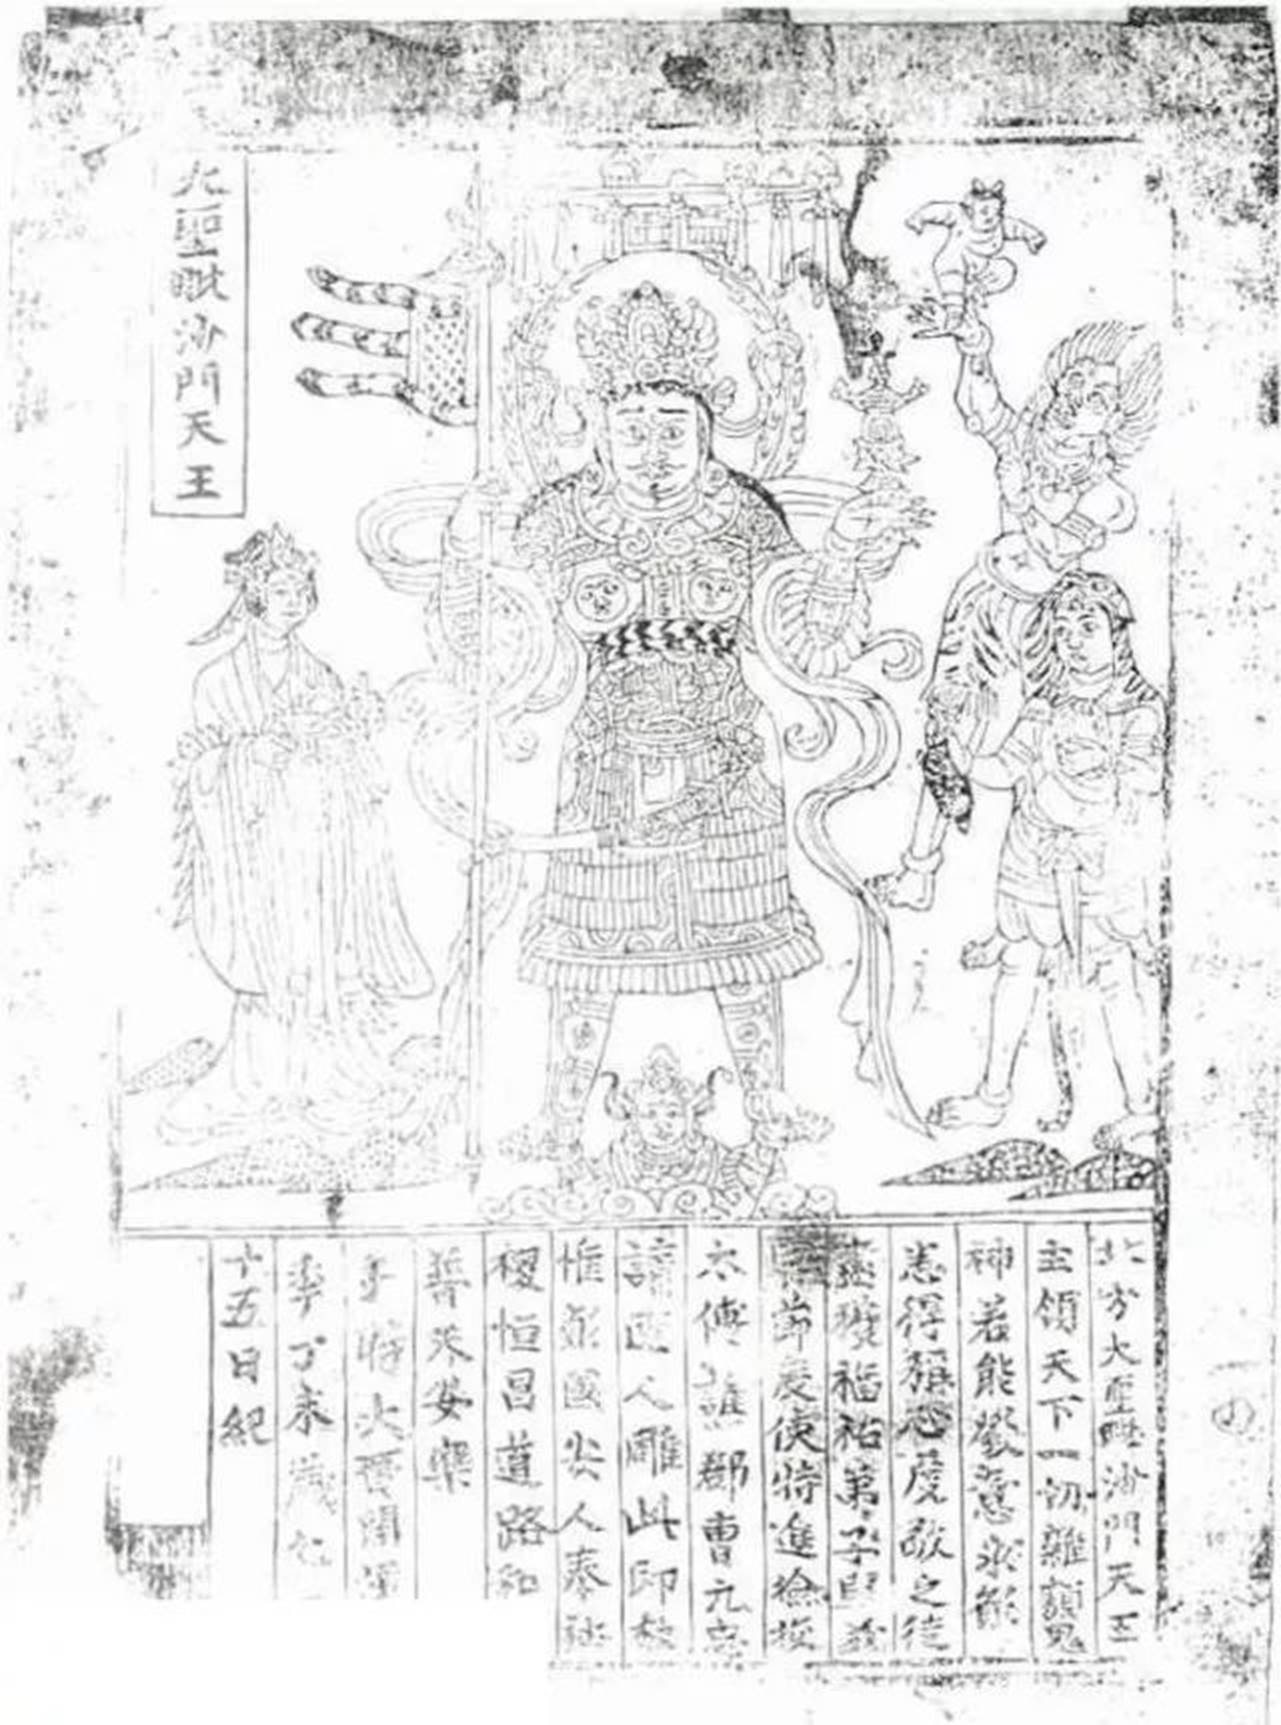 大聖毗沙門天王
北方大聖毗沙門天王
主領天下一切雜類鬼
神若能發意求願
悉得稱心虔敬之徒
盡獲福祐弟子歸義
軍節度使特進檢校
太傅譙郡曹元忠
請匠人雕此印板
惟願國安人泰社
稷恒昌道路和
普天安樂
于時大晉開運
季丁未歲七
十五日紀